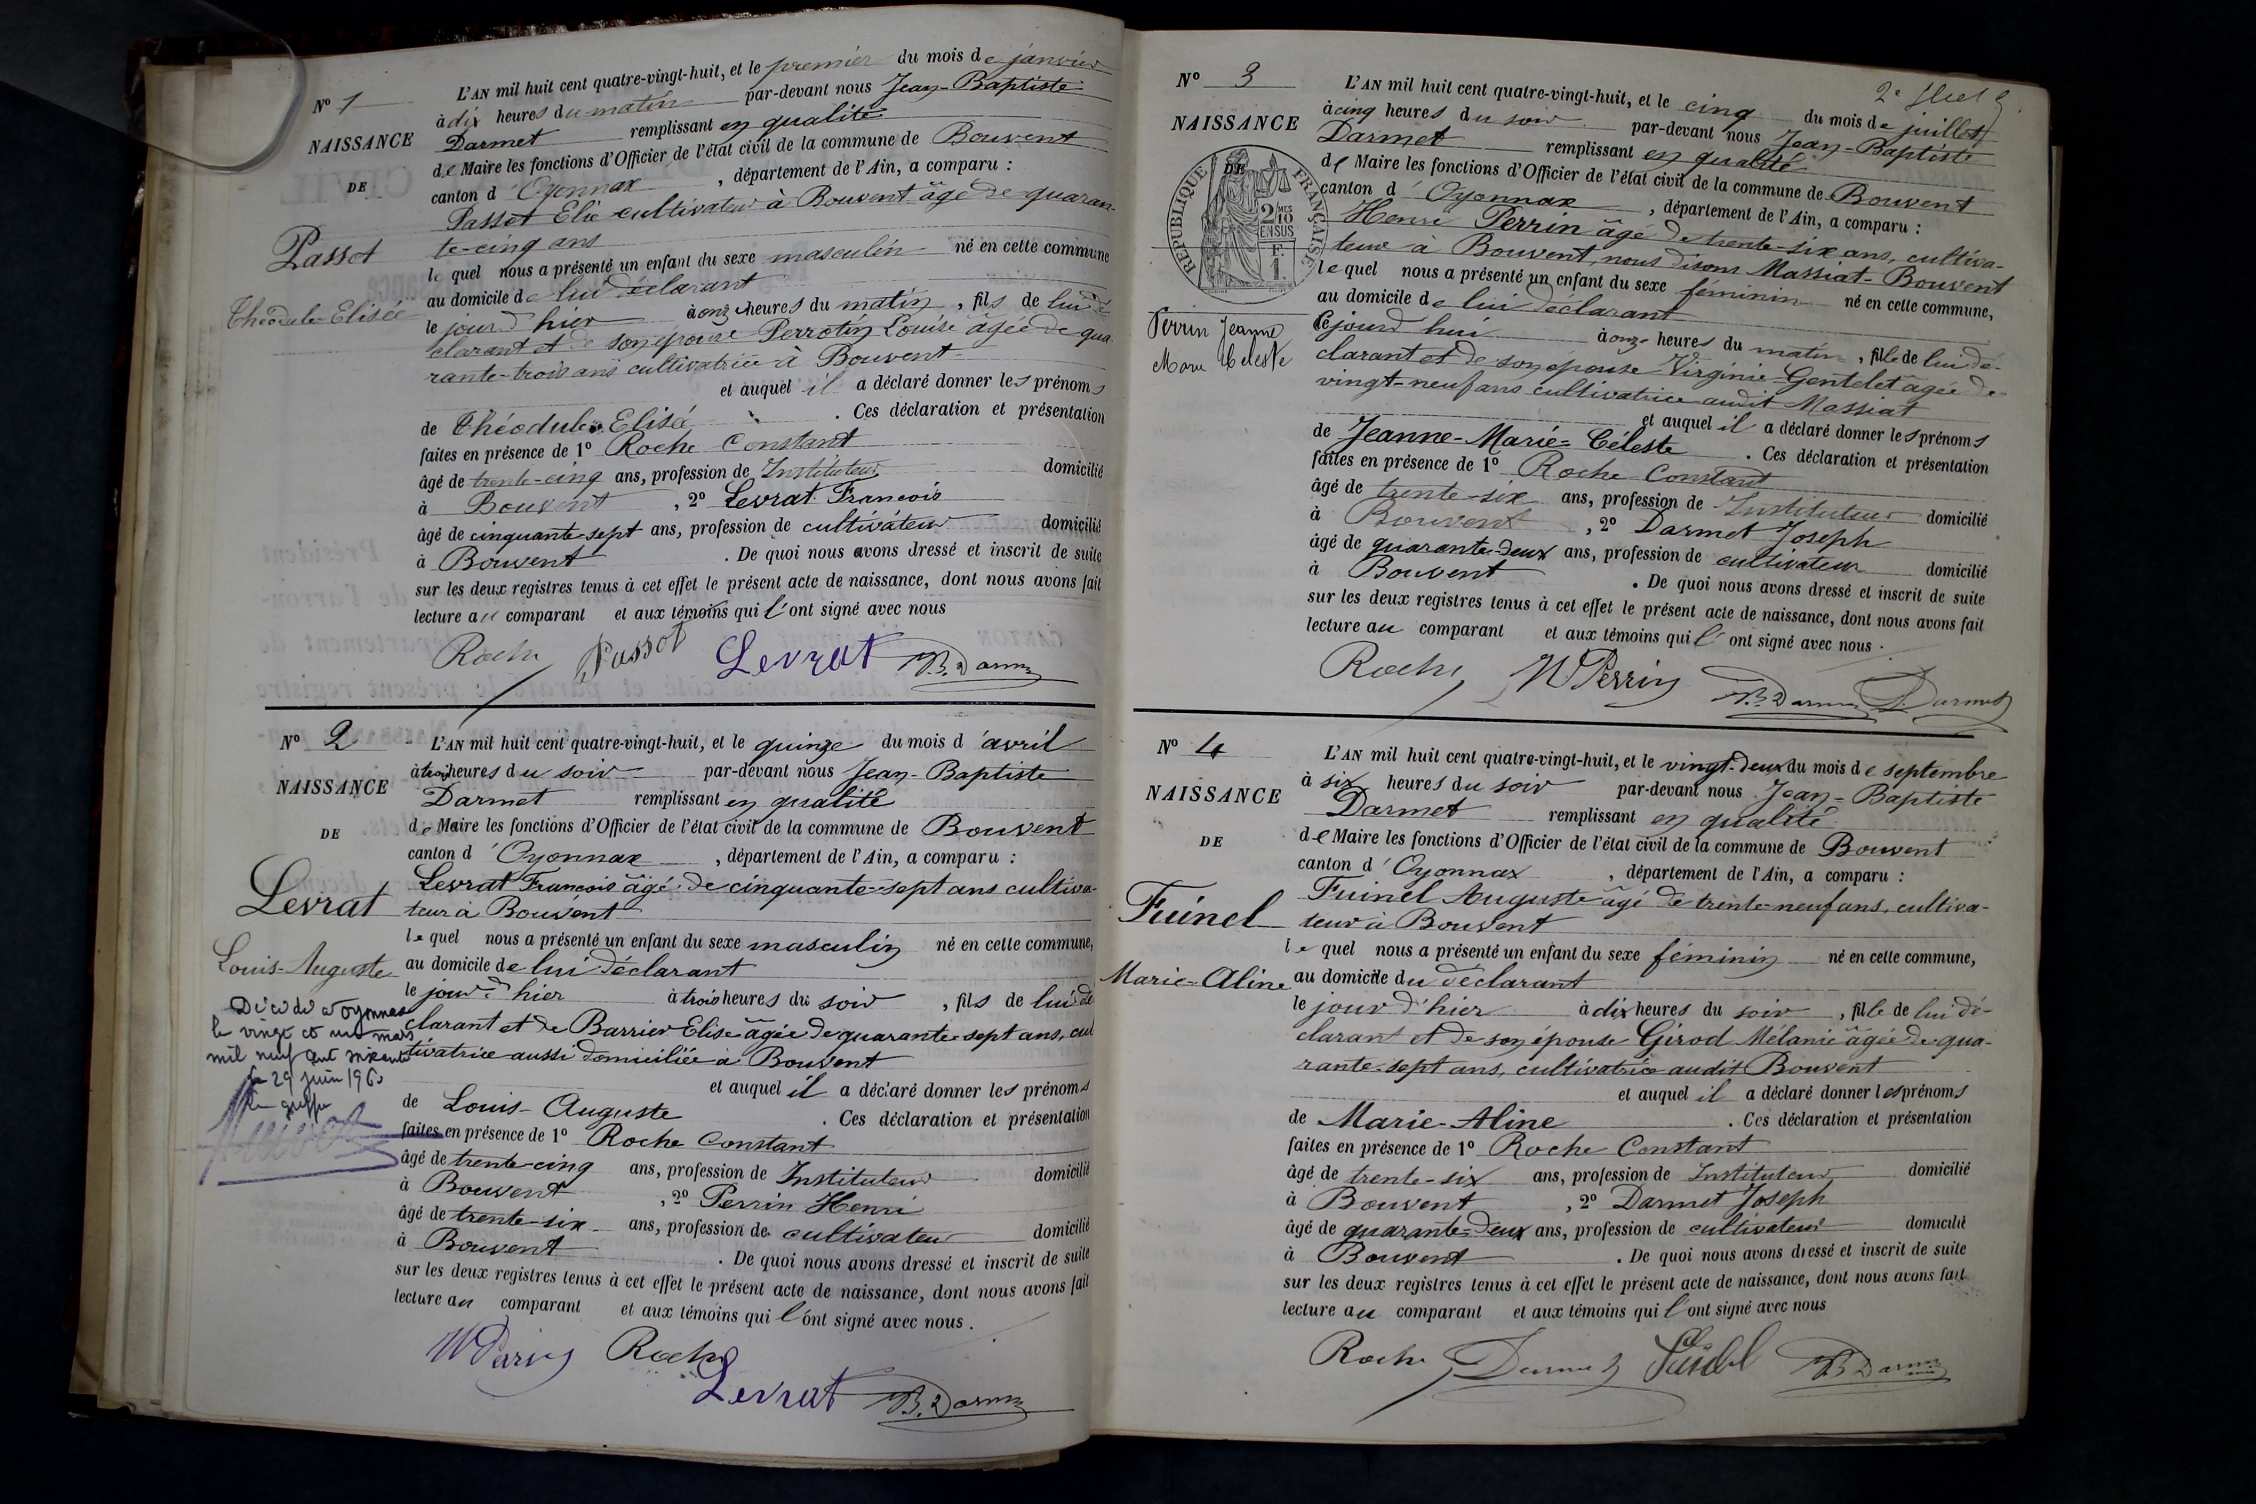 Nº 1
NAISSANCE
DE
Passot
Théodule-Elisée
L'AN mil huit cent quatre-vingt-huit, et le premier du mois de janvier
à dix heures du matin par-devant nous Jean-Baptiste
Darmet remplissant en qualité
de Maire les fonctions d'Officier de l'état civil de la commune de Bouvent
canton d'Oyonnax, département de l'Ain, a comparu :
Passot Elie cultivateur à Bouvent âgé de quaran-
te-cinq ans
lequel nous a présenté un enfant du sexe masculin né en cette commune
au domicile de lui déclarant
le jour d'hier à onze heures du matin, fils de lui dé
clarant et de son épouse Perrotin Louise âgée de qua
rante-trois ans cultivatrice à Bouvent
et auquel il a déclaré donner les prénoms
de Théodule Elisé . Ces déclaration et présentation
faites en présence de 1º Roche Constant
âgé de trente-cinq ans, profession de Instituteur domicilié
à Bouvent, 2º Levrat François
âgé de cinquante sept ans, profession de cultivateur domicilié
à Bouvent . De quoi nous avons dressé et inscrit de suite
sur les deux registres tenus à cet effet le présent acte de naissance, dont nous avons fait
lecture au comparant et aux témoins qui l'ont signé avec nous
Roche Passot Levrat JB. Darmet
Nº 2
NAISSANCE
DE
Levrat
Louis-Auguste
Décédé à Oyonnax
le vingt et un mars
mil neuf cent soixante
le 29 juin 1960
Le greffier
L'AN mil huit cent quatre-vingt-huit, et le quinze du mois d'avril
à trois heures du soir par-devant nous Jean-Baptiste
Darmet remplissant en qualité
de Maire les fonctions d'Officier de l'état civil de la commune de Bouvent
canton d'Oyonnax, département de l'Ain, a comparu :
Levrat François âgé de cinquante-sept ans cultiva-
teur à Bouvent
lequel nous a présenté un enfant du sexe masculin né en cette commune,
au domicile de lui déclarant
le jour d'hier à trois heures du soir, fils de lui dé
clarant et de Barrier Elise âgée de quarante-sept ans, cul
tivatrice aussi domiciliée à Bouvent
et auquel il a déclaré donner les prénoms
de Louis-Auguste . Ces déclaration et présentation
faites en présence de 1º Roche Constant
âgé de trente-cinq ans, profession de Instituteur domicilié
à Bouvent, 2º Perrin Henri
âgé de trente-six ans, profession de cultivateur domicilié
à Bouvent . De quoi nous avons dressé et inscrit de suite
sur les deux registres tenus à cet effet le présent acte de naissance, dont nous avons fait
lecture au comparant et aux témoins qui l'ont signé avec nous.
H Perrin Roche
Levrat JB. Darmet
2e
Nº 3
NAISSANCE
DE
RÉPUBLIQUE FRANÇAISE
2/10
EN SUS
F.
1.
Perrin Jeanne
Marie Céleste
L'AN mil huit cent quatre-vingt-huit, et le cinq du mois de juillet
à cinq heures du soir par-devant nous Jean-Baptiste
Darmet remplissant en qualité
de Maire les fonctions d'Officier de l'état civil de la commune de Bouvent
canton d'Oyonnax, département de l'Ain, a comparu :
Henri Perrin âgé de trente-six ans, cultiva-
teur à Bouvent, nous disons Massiat-Bouvent
lequel nous a présenté un enfant du sexe féminin né en cette commune,
au domicile de lui déclarant
Cejourd'hui à onze heures du matin, fille de lui dé-
clarant et de son épouse Virginie Gentelet âgée de
vingt-neuf ans cultivatrice audit Massiat
et auquel il a déclaré donner les prénoms
de Jeanne-Marie-Céleste . Ces déclaration et présentation
faites en présence de 1º Roche Constant
âgé de trente-six ans, profession de Instituteur domicilié
à Bouvent, 2º Darmet Joseph
âgé de quarante-deux ans, profession de cultivateur domicilié
à Bouvent . De quoi nous avons dressé et inscrit de suite
sur les deux registres tenus à cet effet le présent acte de naissance, dont nous avons fait
lecture au comparant et aux témoins qui l'ont signé avec nous.
Roche H Perrin JB. Darmet J. Darmet
Nº 4
NAISSANCE
DE
Fuinel
Marie-Aline
L'AN mil huit cent quatre-vingt-huit, et le vingt-deux du mois de septembre
à six heures du soir par-devant nous Jean-Baptiste
Darmet remplissant en qualité
de Maire les fonctions d'Officier de l'état civil de la commune de Bouvent
canton d'Oyonnax, département de l'Ain, a comparu :
Fuinel Auguste âgé de trente-neuf ans, cultiva-
teur à Bouvent
lequel nous a présenté un enfant du sexe féminin né en cette commune,
au domicile du déclarant
le jour d'hier à dix heures du soir, fille de lui dé-
clarant et de son épouse Girod Mélanie âgée de qua-
rante-sept ans, cultivatrice audit Bouvent
et auquel il a déclaré donner les prénoms
de Marie-Aline . Ces déclaration et présentation
faites en présence de 1º Roche Constant
âgé de trente-six ans, profession de Instituteur domicilié
à Bouvent, 2º Darmet Joseph
âgé de quarante-deux ans, profession de cultivateur domicilié
à Bouvent . De quoi nous avons dressé et inscrit de suite
sur les deux registres tenus à cet effet le présent acte de naissance, dont nous avons fait
lecture au comparant et aux témoins qui l'ont signé avec nous
Roche Darmet Fuinel JB Darmet